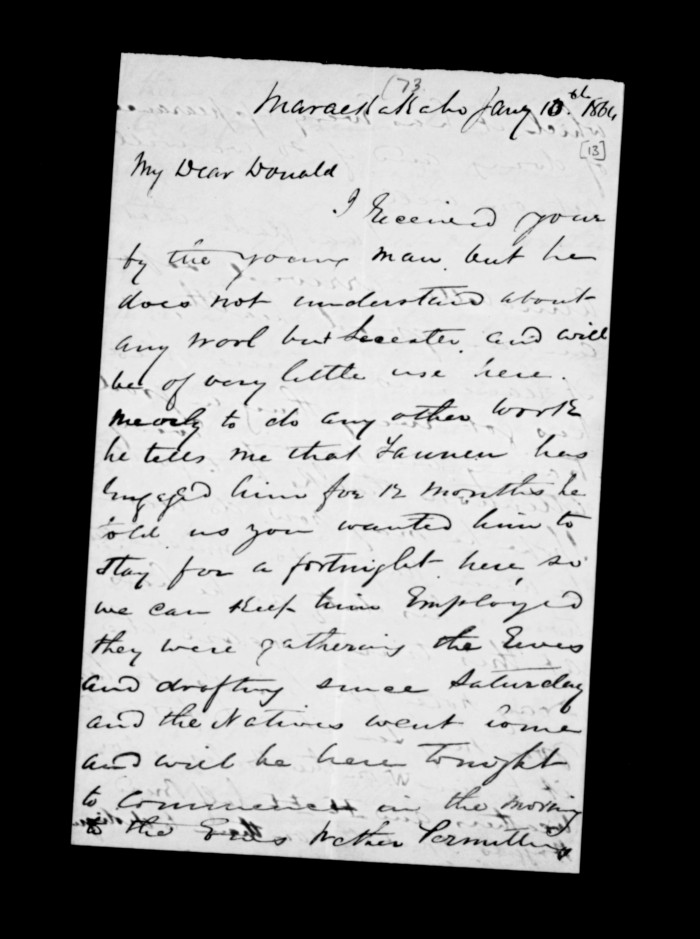 (73
Maraekakaho Jany 10th 1864
[13]
My Dear Donald
I Received your
by the young man but he
does not understand about
any work but and will
be of very little use here.
to do any other work
he tells me that has
Engaged him for 12 months he
told us you wanted him to
stay for a fortnight here so
we can Keep him Employed
they were gathering the Ewes
and drafting since Saturday
and the Natives went home
and will be here Tonight
to commence in the morning
the Ewes Wether Permitting